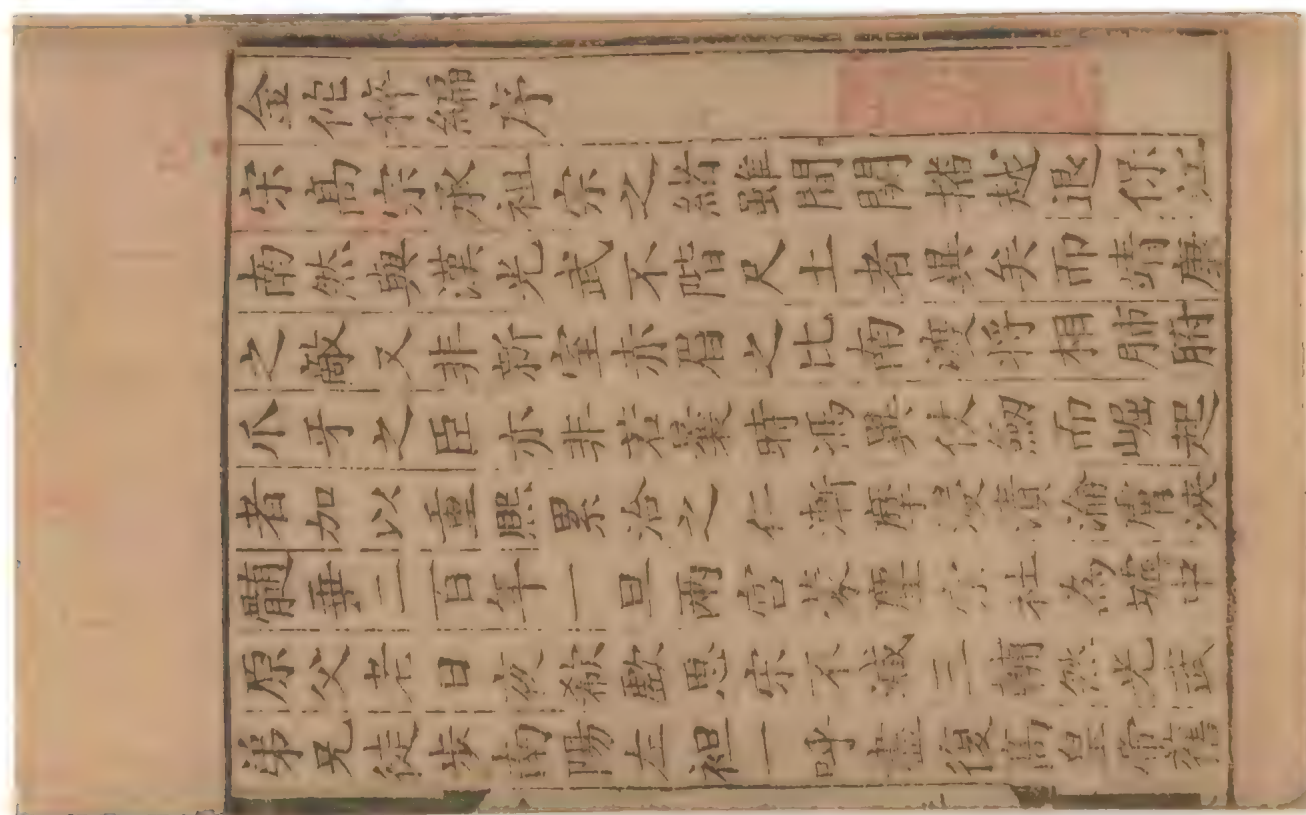 金佗稡編序
宋高宗承祖宗之緒雖間關播越退保江
南然與漢光武不階尺土者異矣而靖康
之敵又非新室赤眉之比南渡將相肺腑
爪牙之臣亦非若曩時馮異仗劒而崛起
者加以重熈累洽之仁漸摩浸漬淪膚浹
髓垂二百年一旦兩宮蒙塵宗社為墟中
原父老日夜欷歔思宋不減三輔然光武
弟兄徒步南陽左袒一呼盡復高皇帝舊